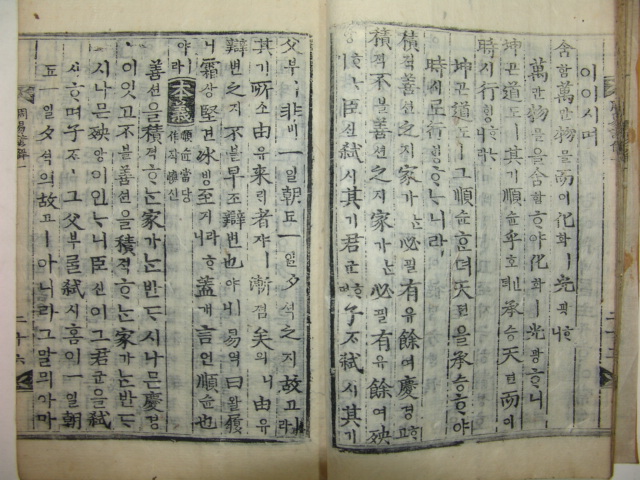 이이시며
含함萬만物믈而이化화ㅣ光광ᄒᆞ
萬만物믈을含함ᄒᆞ야化화ㅣ光광ᄒᆞ니
坤곤道도ㅣ其기順슌乎호뎌承승天텬而이
時시行ᄒᆡᆼᄒᆞᄂᆞ니라
坤곤道도ㅣ그順슌ᄒᆞᆫ뎌天텬을承승ᄒᆞ야
時시로行ᄒᆡᆼᄒᆞᄂᆞ니라
積적善션之지家가ᄂᆞᆫ必필有유餘여慶경ᄒᆞ고
積적不블善션之지家가ᄂᆞᆫ必필有유餘여殃
앙ᄒᆞᄂᆞ니臣신弑시其기君군ᄒᆞ며子ᄌᆞ弑시其기
父부ㅣ非비一일朝됴一일夕셕之지故고ㅣ라
其기所소由유來ᄅᆡ者쟈ㅣ漸졈矣의니由유
辯변之지不블早조辯변也야ㅣ니易역曰왈履
霜상堅견冰빙至지라ᄒᆞ니盖개言언順슌也
야ㅣ라 本義 順슌當당作작愼신
善션을積적ᄒᆞᆫ家가ᄂᆞᆫ반ᄃᆞ시나믄慶경
이잇고不블善션을積적ᄒᆞᆫ家가ᄂᆞᆫ반ᄃᆞ
시나믄殃앙이인ᄂᆞ니臣신이그君군을弑
시ᄒᆞ며子ᄌᆞㅣ그父부를弑시홈이一일朝
됴一일夕셕의故고ㅣ아니라그말믜아마
周易諺解一
二十六